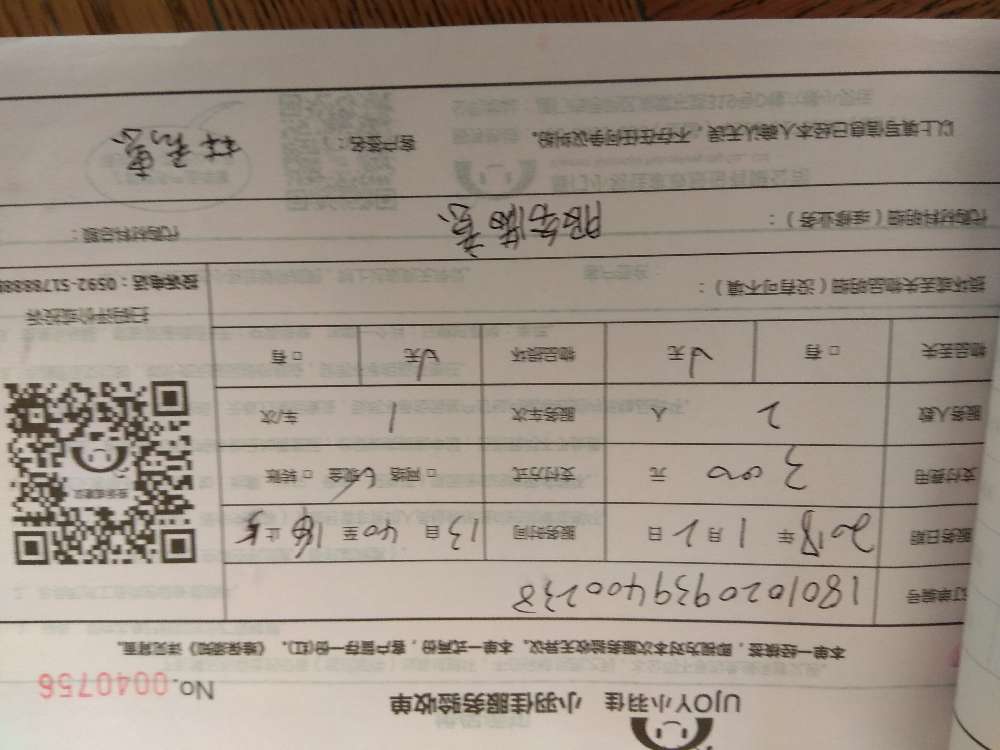 UJOY小羽佳 小羽佳服务验收单
No.0040756
本单一经核签，即视为对本次服务验收无异议。本单一式两份，客户留存一份(红)。《维保须知》详见背面。
订单编号 180102093940238
服务日期 2018年1月2日 服务时间 13自40至16止
支付费用 300元 支付方式 □网络 现金 □转账
服务人数 2人 服务车次 1车/次
物品丢失 □有 无 物品损坏 无 □有
投诉或建议
扫码评价或投诉
投诉电话：0592-5178888
损坏或丢失物品明细（没有可不填）：
代购材料明细（维修业务）： 服务满意 代购材料总额：
以上填写信息已经本人确认无误，不存在任何争议纠纷。 客户签名：